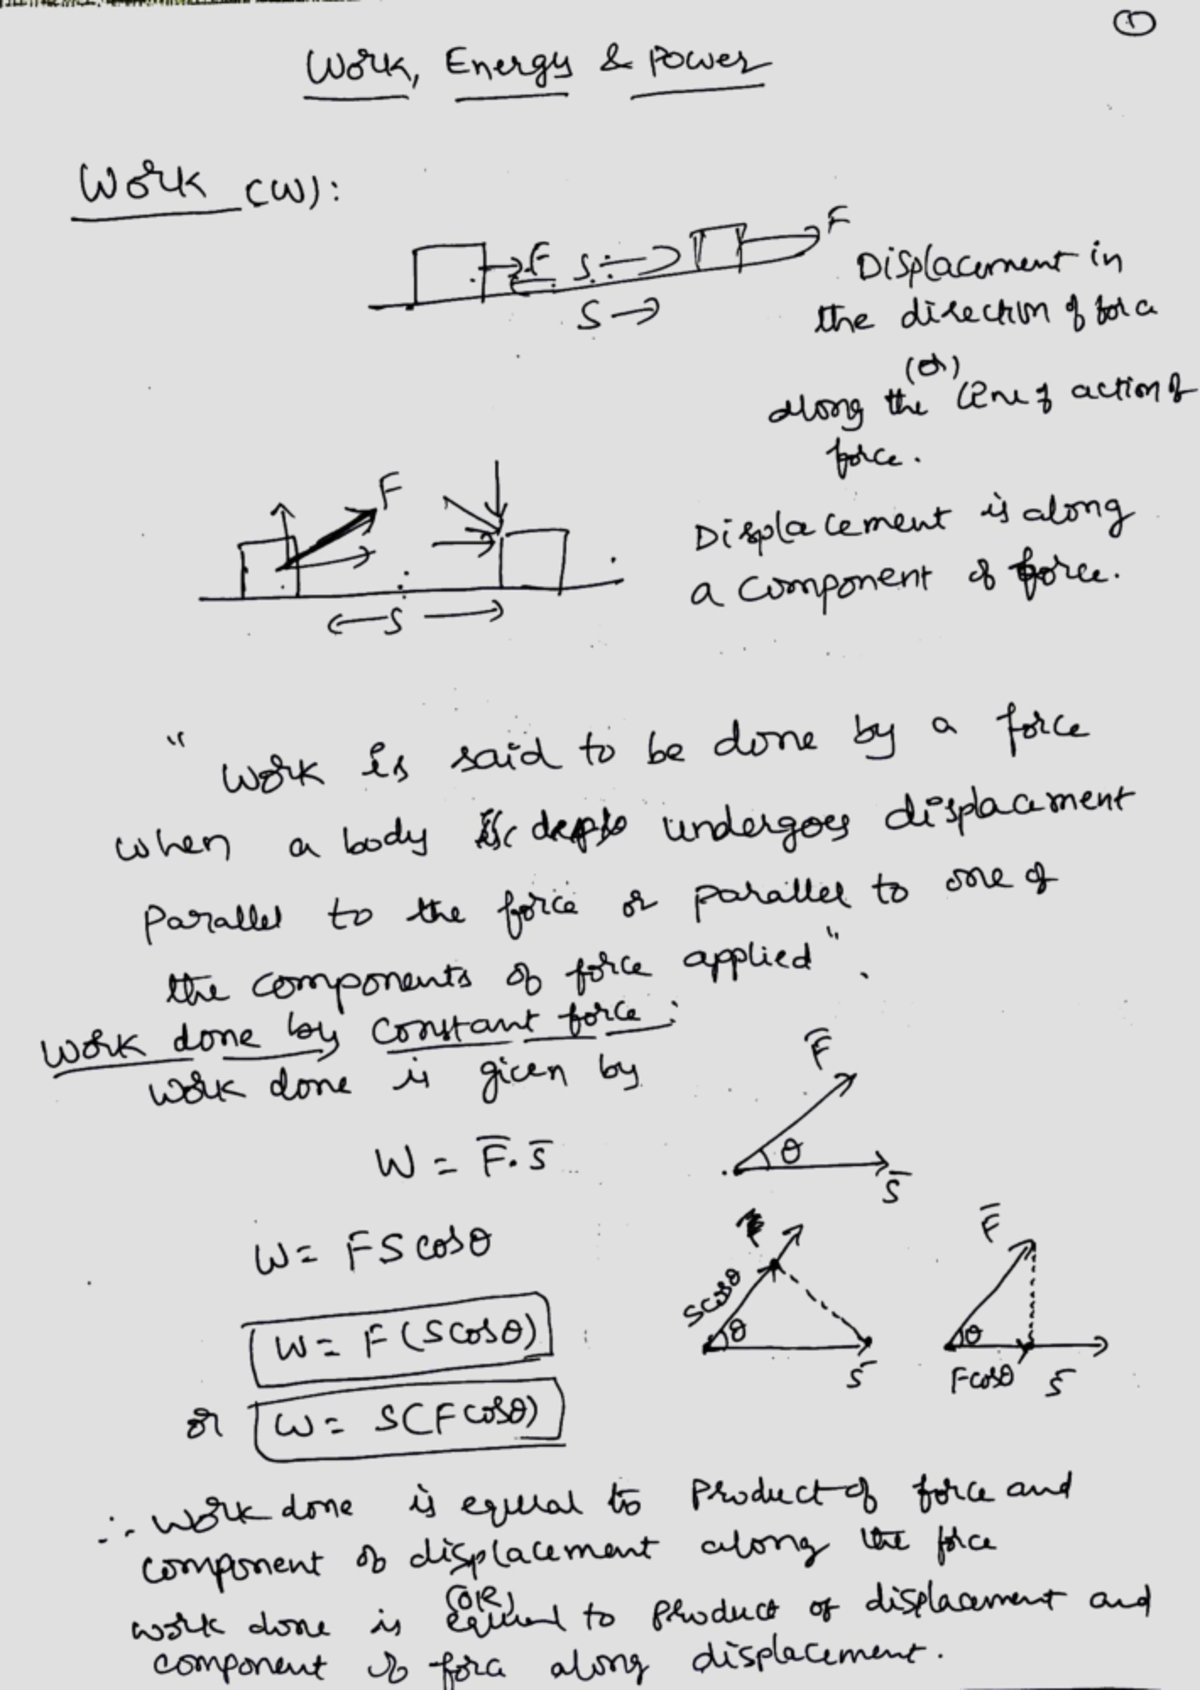 ①
Work, Energy & Power
Work (W):
F S → F
S →
Displacement in
the direction of force
(or)
along the line of action of
force.
F
← S →
Displacement is along
a component of force.
"Work is said to be done by a force
when a body undergoes displacement
Parallel to the force or parallel to one of
the components of force applied".
Work done by constant force:
Work done is given by
F̅
θ
S̅
W = F̅.S̅
W = FS cosθ
Scosθ
θ
S̅
F̅
θ
Fcosθ S̅
W = F(Scosθ)
or W = S(Fcosθ)
∴ Work done is equal to Product of force and
component of displacement along the force
(OR)
Work done is equal to product of displacement and
component of force along displacement.